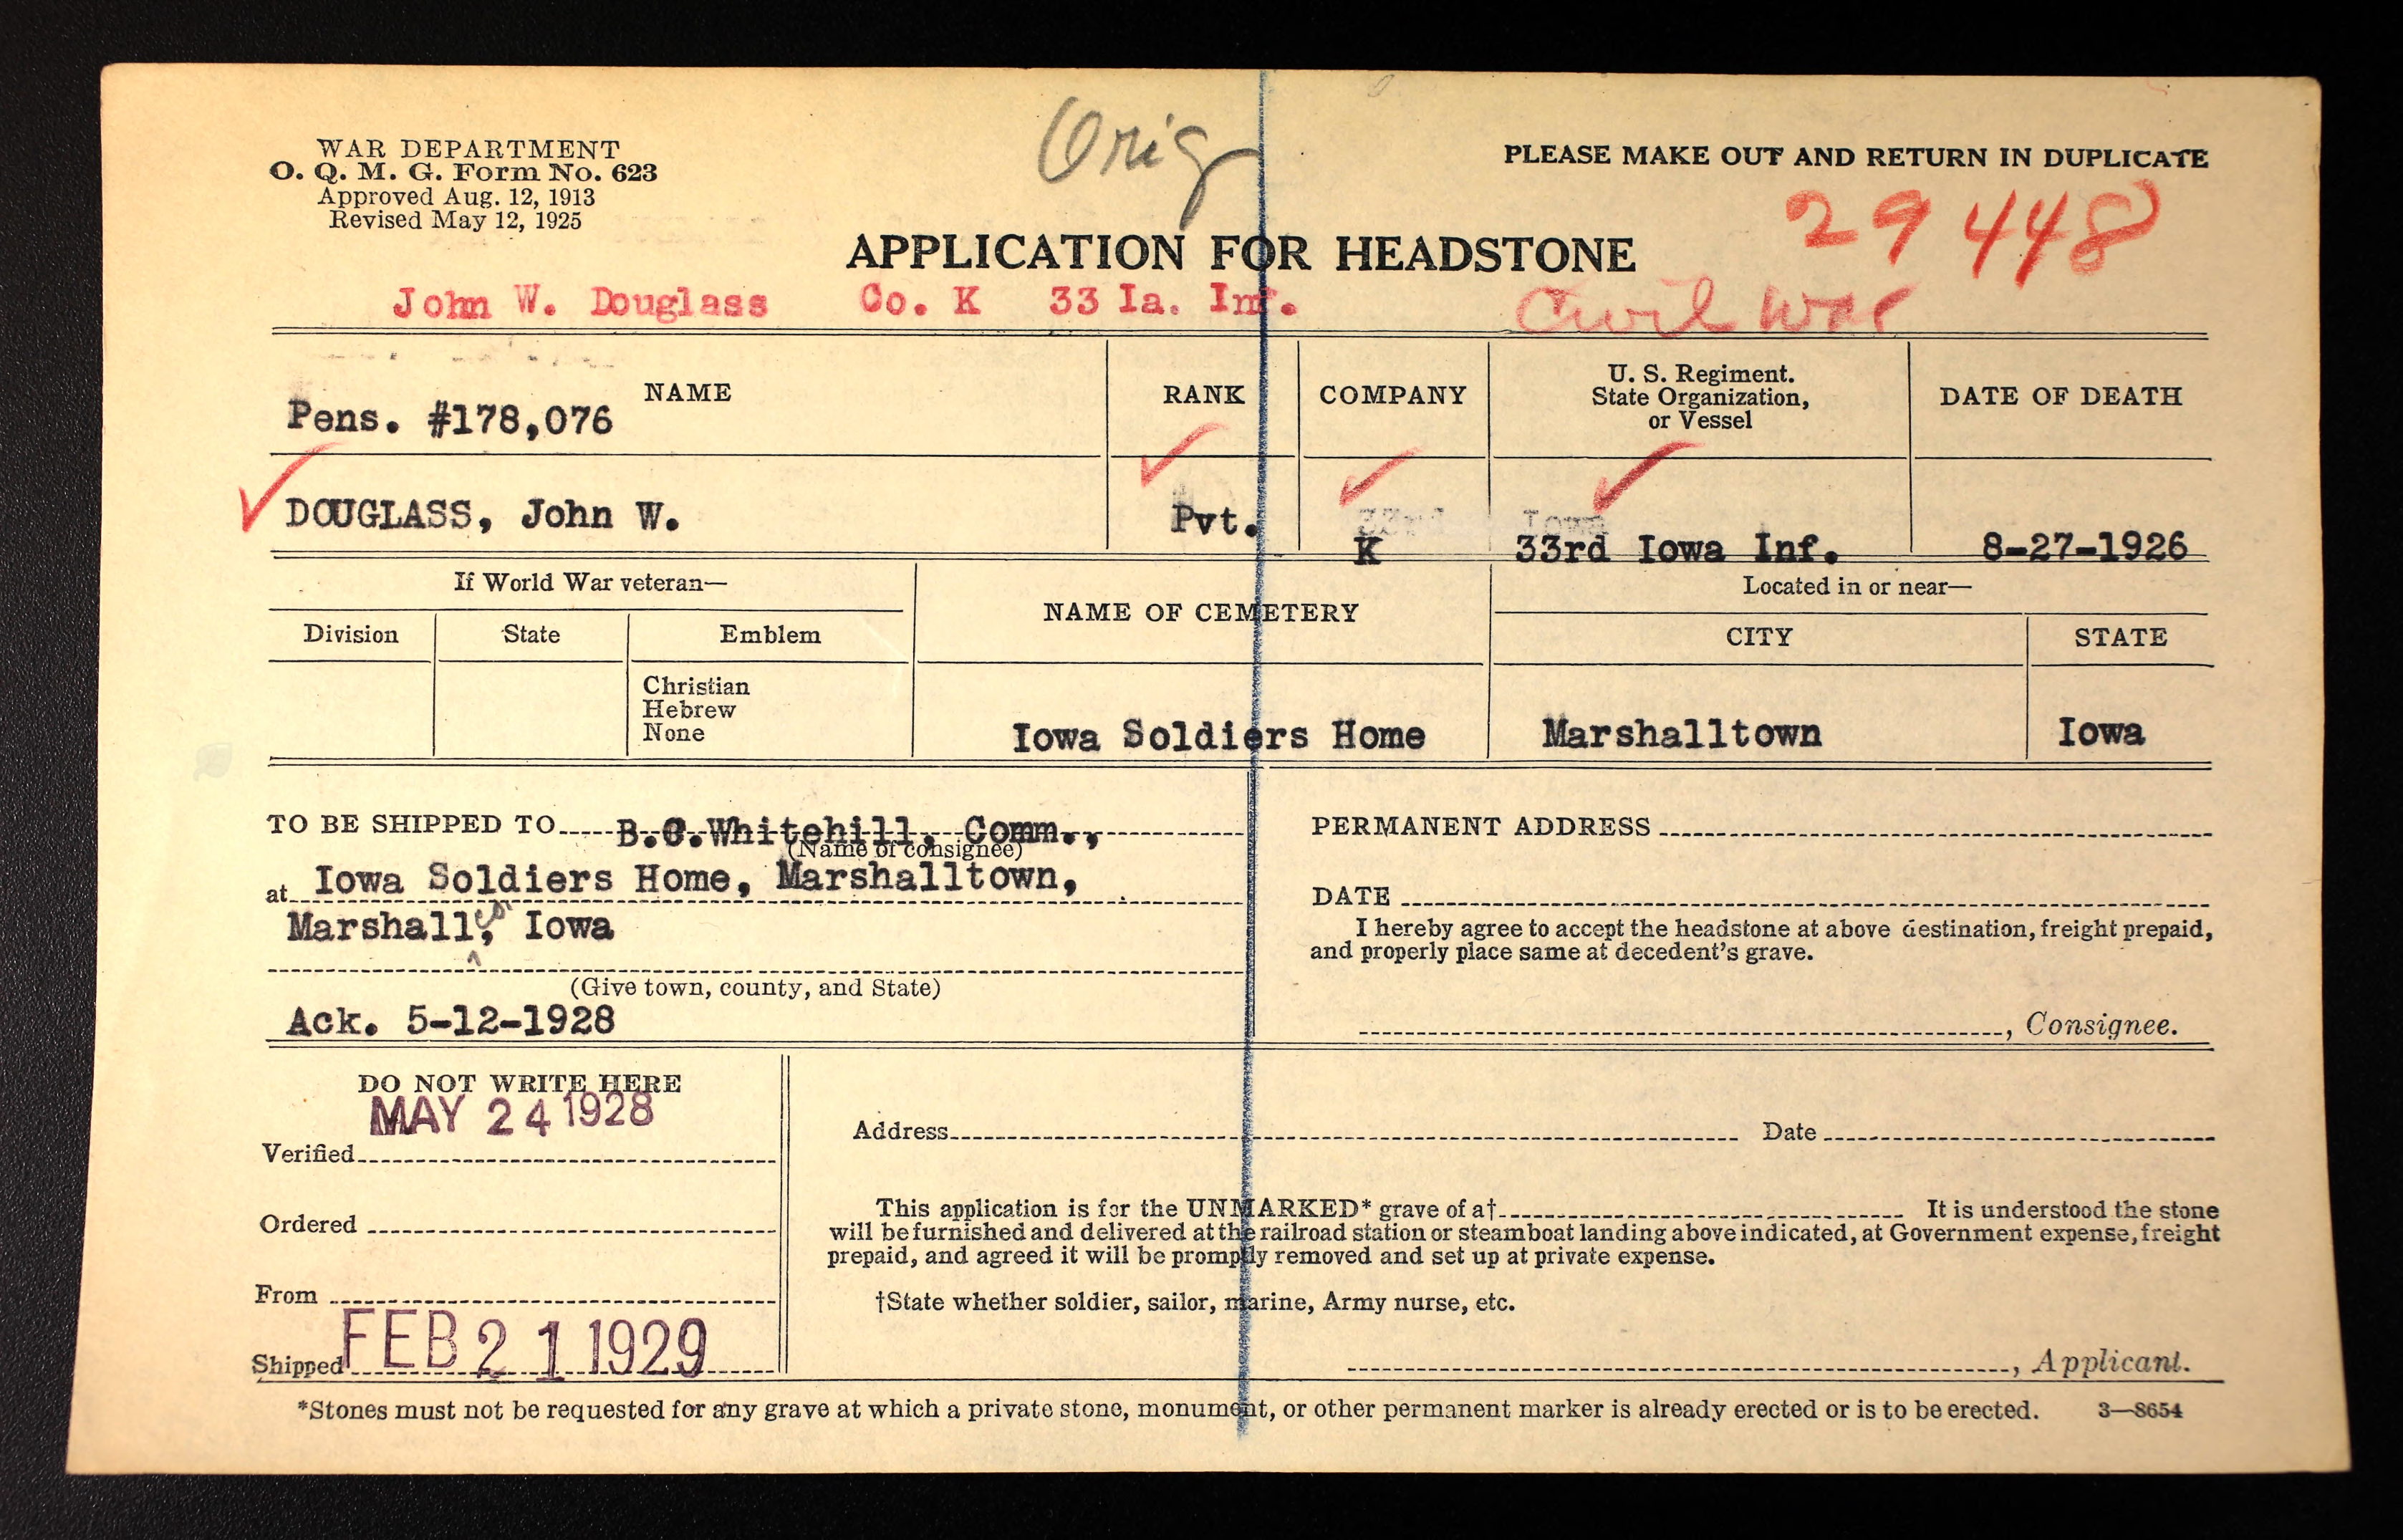 Orig
WAR DEPARTMENT
O. Q. M. G. Form No. 623
Approved Aug. 12, 1913
Revised May 12, 1925
PLEASE MAKE OUT AND RETURN IN DUPLICATE
29448
APPLICATION FOR HEADSTONE
John W. Douglass Co. K 33 Ia. Inf.
Civil War
NAME
Pens. #178,076
RANK
COMPANY
U. S. Regiment.
State Organization,
or Vessel
DATE OF DEATH
DOUGLASS, John W.
Pvt.
33rd Iowa
K
33rd Iowa Inf.
8-27-1926
If World War veteran—
NAME OF CEMETERY
Located in or near—
Division
State
Emblem
CITY
STATE
Christian
Hebrew
None
Iowa Soldiers Home
Marshalltown
Iowa
TO BE SHIPPED TO B.C.Whitehill, Comm.,
(Name of consignee)
at Iowa Soldiers Home, Marshalltown,
Marshall, Iowa
(Give town, county, and State)
Ack. 5-12-1928
PERMANENT ADDRESS
DATE
I hereby agree to accept the headstone at above destination, freight prepaid,
and properly place same at decedent's grave.
, Consignee.
DO NOT WRITE HERE
MAY 24 1928
Verified
Ordered
From
Shipped FEB 21 1929
Address Date
This application is for the UNMARKED* grave of a† It is understood the stone
will be furnished and delivered at the railroad station or steamboat landing above indicated, at Government expense, freight
prepaid, and agreed it will be promptly removed and set up at private expense.
†State whether soldier, sailor, marine, Army nurse, etc.
, Applicant.
*Stones must not be requested for any grave at which a private stone, monument, or other permanent marker is already erected or is to be erected. 3—8654